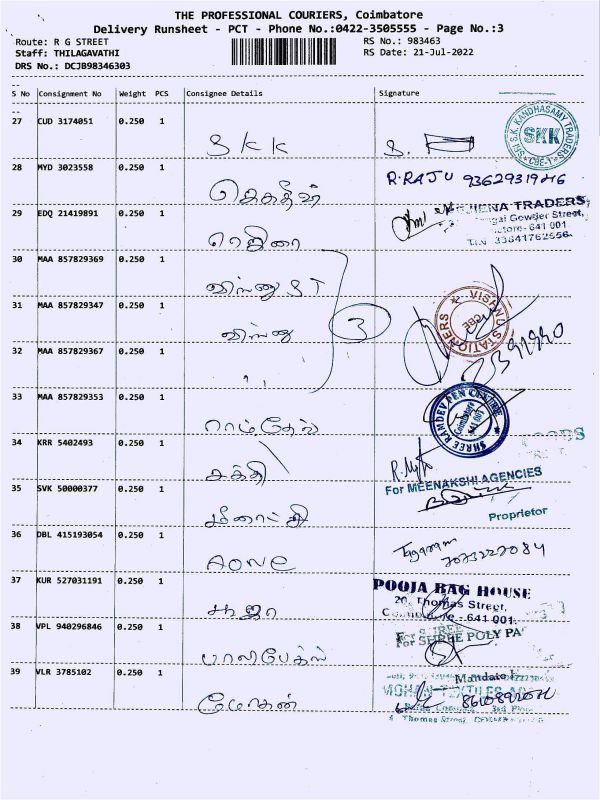 THE PROFESSIONAL COURIERS, Coimbatore
Delivery Runsheet - PCT - Phone No.:0422-3505555 - Page No.:3
Route: R G STREET RS No.: 983463
Staff: THILAGAVATHI RS Date: 21-Jul-2022
DRS No.: DCJB98346303
S No Consignment No Weight PCS Consignee Details Signature
27 CUD 3174051 0.250 1
SKK S. SRI S.K. KANDHASAMY TRADERS SKK CBE-1
28 MYD 3023558 0.250 1
R.RAJU
29 EDQ 21419891 0.250 1
TRADERS
Gowder Street,
641 001
30 MAA 857829369 0.250 1
விஷ்ணு ST
31 MAA 857829347 0.250 1
விஷ்ணு 3 VISHNU STATIONERS
32 MAA 857829367 0.250 1
" 
33 MAA 857829353 0.250 1
ராம்தேவ் SHREE RAMDEV PEN CENTRE Coimbatore 641 001
34 KRR 5402493 0.250 1
சக்தி
For MEENAKSHI AGENCIES
35 SVK 50000377 0.250 1
மீனாட்சி Proprietor
36 DBL 415193054 0.250 1
AONE
37 KUR 527031191 0.250 1
பூஜா POOJA BAG HOUSE
20, Thomas Street,
641 001.
38 VPL 940296846 0.250 1
பாலிபேக்ஸ் For SHREE POLY PA
39 VLR 3785102 0.250 1
மோகன் MOHAN TEXTILES
Thomas Street,